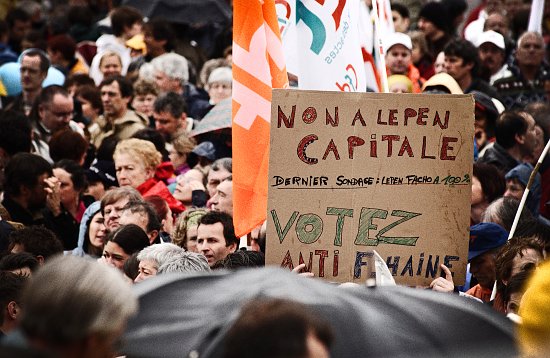 NON A LEPEN
CAPITALE
DERNIER SONDAGE : LEPEN FACHO A 100 %
VOTEZ
ANTI F HAINE